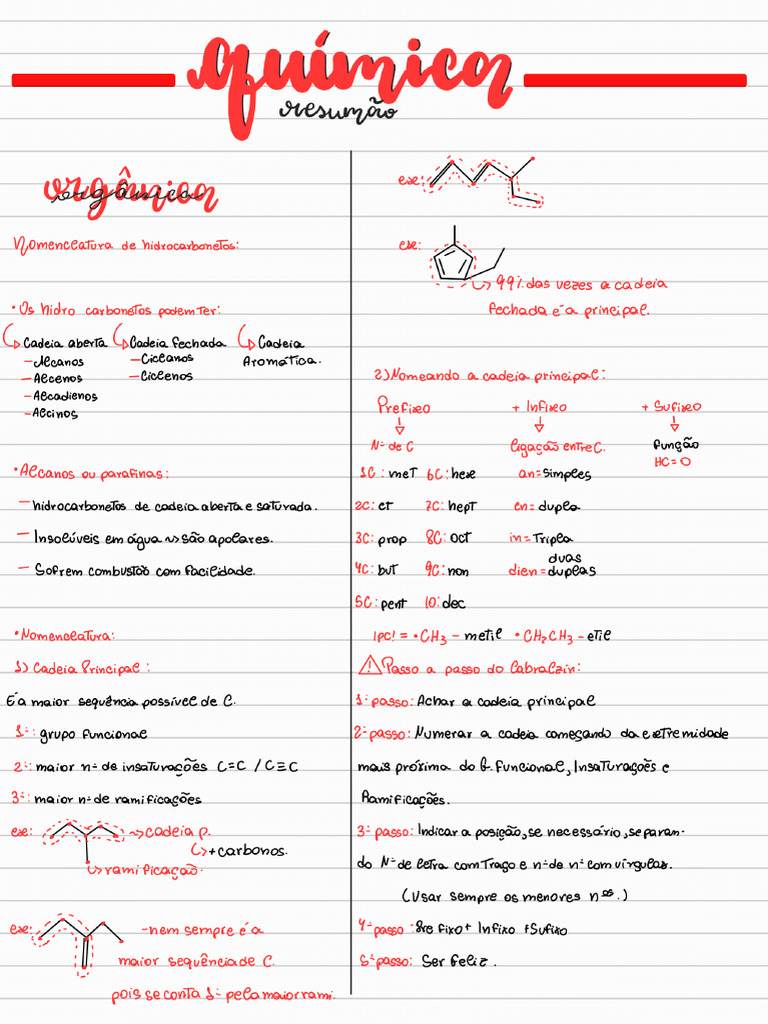 química
resumão
orgânica
Nomenclatura de hidrocarbonetos:
• Os hidro carbonetos podem ter:
Cadeia aberta
- Alcanos
- Alcenos
- Alcadienos
- Alcinos
Cadeia fechada
- Ciclanos
- Ciclenos
Cadeia
Aromática.
• Alcanos ou parafinas:
- hidrocarbonetos de cadeia aberta e saturada.
- Insolúveis em água ~> são apolares.
- Sofrem combustão com facilidade.
• Nomenclatura:
1) Cadeia Principal:
É a maior sequência possível de C.
1º: grupo funcional
2º: maior nº de insaturações C=C / C≡C
3º: maior nº de ramificações
ex: ~> cadeia p.
↳ + carbonos.
↳ ramificação.
ex: - nem sempre é a
maior sequência de C.
pois se conta 1º pela maior rami.
ex:
ex:
↳ 99% das vezes a cadeia
fechada é a principal.
2) Nomeando a cadeia principal:
Prefixo + Infixo + Sufixo
Nº de C ligação entre C. função
HC=O
1C: met 6C: hex an= simples
2C: et 7C: hept en= dupla
3C: prop 8C: oct in= Tripla
4C: but 9C: non dien= duas duplas
5C: pent 10: dec
Ipc! = • CH3 - metil • CH2CH3 - etil
⚠ Passo a passo do Cabralzin:
1º passo: Achar a cadeia principal
2º passo: Numerar a cadeia começando da extremidade
mais próxima do G. funcional, Insaturações e
Ramificações.
3º passo: Indicar a posição, se necessário, separan-
do Nº de letra com Traço e nº de nº com vírgulas.
(Usar sempre os menores nºs.)
4º passo: Pre fixo + Infixo + Sufixo
5º passo: Ser feliz.